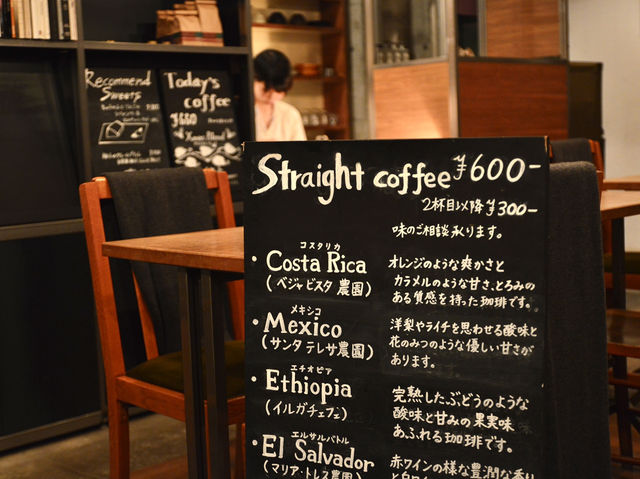 Recommend
Sweets
Today's
coffee
¥680
Straight coffee ¥600-
2杯目以降¥300-
味のご相談承ります。
コスタリカ
・Costa Rica
(ベジャビスタ 農園)
オレンジのような爽かさと
カラメルのような甘さ、とろみの
ある質感を持った珈琲です。
メキシコ
・Mexico
(サンタ テレサ農園)
洋梨やライチを思わせる酸味と
花のみつのような優しい甘さが
あります。
エチオピア
・Ethiopia
(イルガチェフェ)
完熟したぶどうのような
酸味と甘みの果実味
あふれる珈琲です。
エルサルバトル
・El Salvador
(マリア・トレス農園)
赤ワインの様な豊潤な香り